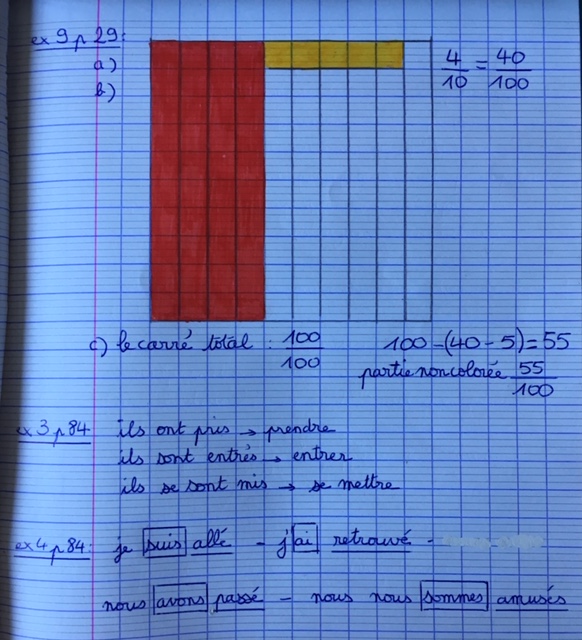 ex 9 p 29:
a) 4/10 = 40/100
b)
c) le carré total : 100/100 100-(40-5)=55
partie non colorée 55/100
ex 3 p 84 ils ont pris → prendre
ils sont entrés → entrer
ils se sont mis → se mettre
ex 4 p 84: je suis allé - j'ai retrouvé -
nous avons passé - nous nous sommes amusés